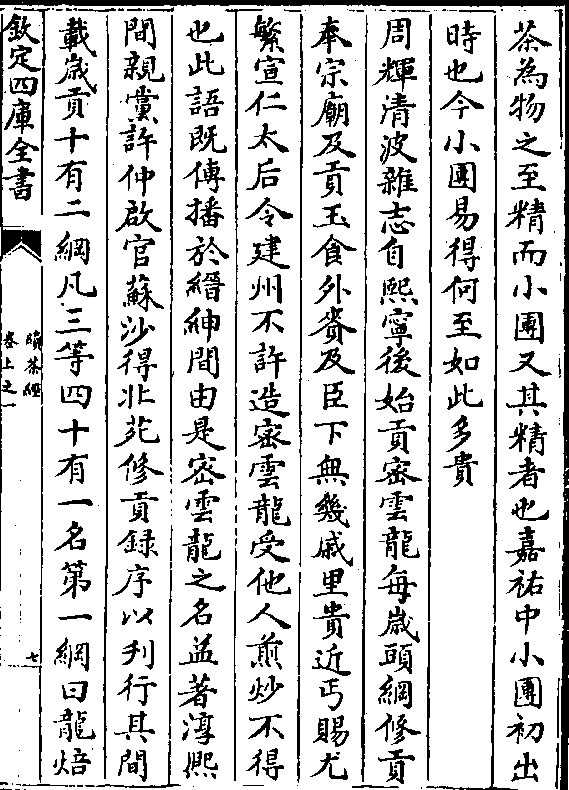 茶為物之至精而小團又其精者也嘉祐中小團初出
時也今小團易得何至如此多貴
周輝清波雜志自熙寧後始貢密雲龍每歲頭綱修貢
奉宗廟及貢玉食外賚及臣下無幾戚里貴近丐賜尤
繁宣仁太后令建州不許造密雲龍受他人煎炒不得
也此語既傳播於縉紳間由是密雲龍之名益著淳熙
間親黨許仲啟官蘇沙得北苑修貢録序以刋行其間
載歲貢十有二綱凡三等四十有一名第一綱曰龍焙
欽定四庫全書
續茶經
卷上之一
七